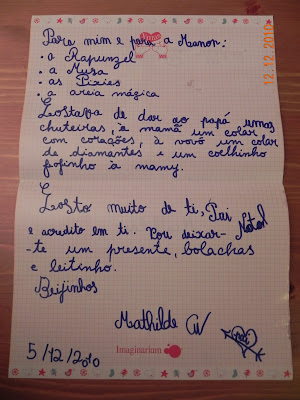 Para mim e para a Manon:
• o Rapunzel
• a Musa
• as Pixies
• a areia mágica
Gostava de dar ao papá umas
chuteiras, à mamã um colar
com corações, à vovó um colar
de diamantes e um coelhinho
fofinho à mamy.
Gosto muito de ti, Pai
Natal
e acredito em ti. Vou deixar-
-te um presente, bolachas
e leitinho.
Beijinhos
Mathilde
Imaginarium
5/12/2010
12.12.2010